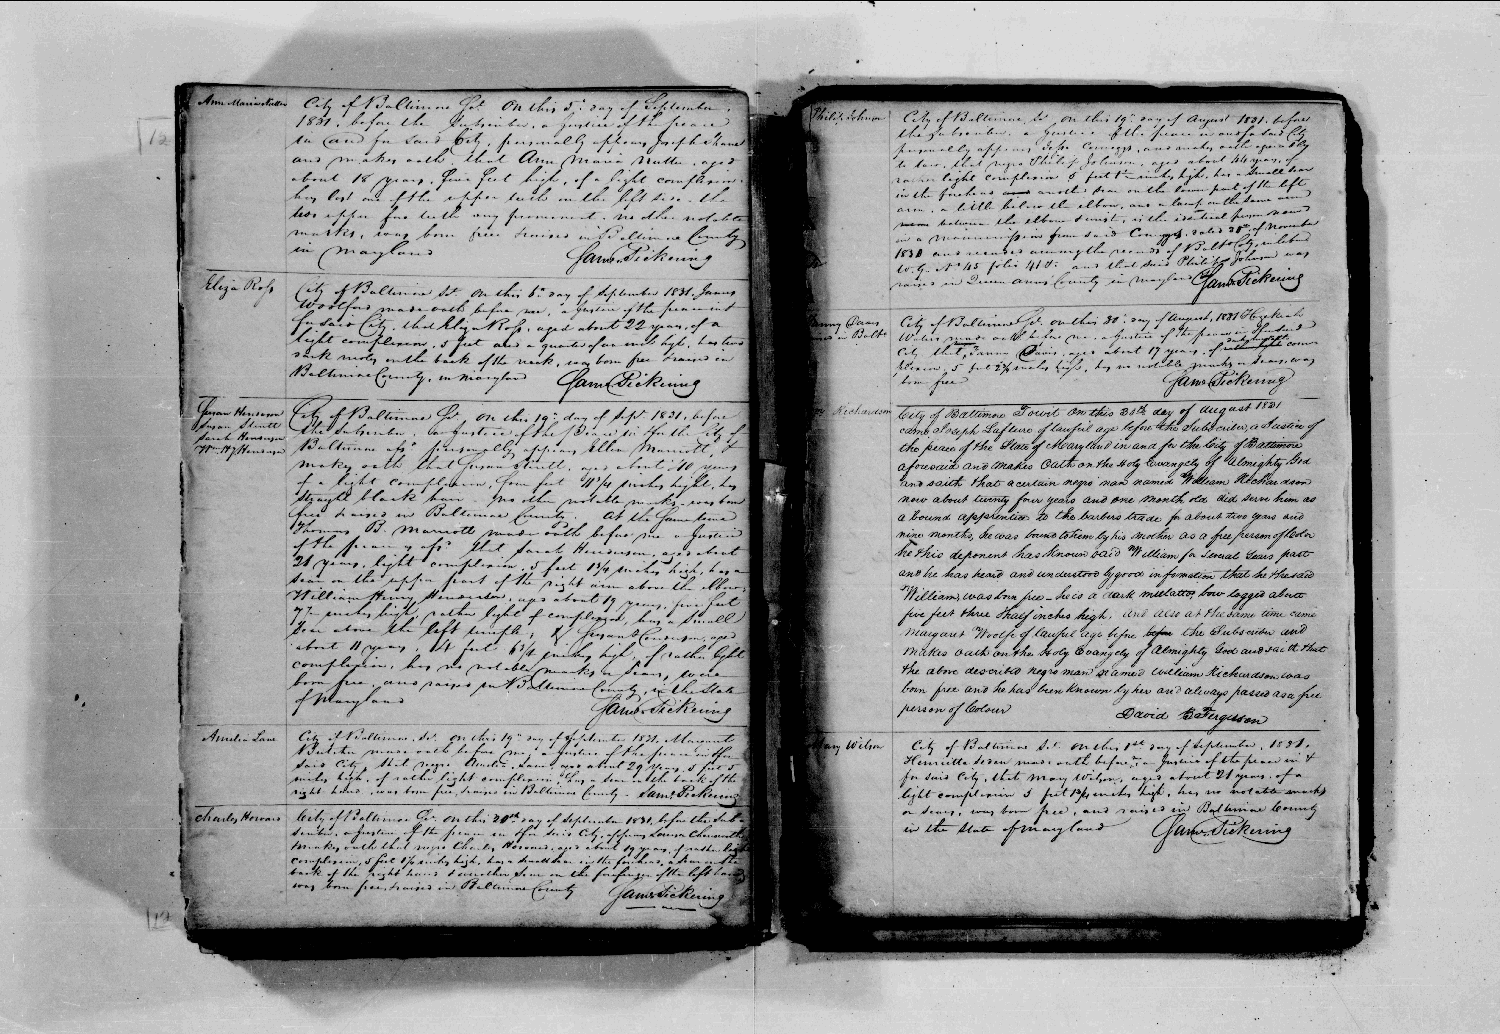 Ann Maria Nutter
City of Baltimore Sct. On this 5th day of September,
1831, before the Subscriber, a Justice of the peace
in and for said City, personally appears Joseph
and makes oath that Ann Maria Nutter, aged
about 18 years, five feet high, of a light complexion,
has lost one of the upper teeth on the left side, the
two upper fore teeth very prominent, no other notable
marks, was born free & raised in Baltimore County
in Maryland
Saml. Pickering
Eliza Ross
City of Baltimore Sct. On this 6th day of September 1831, James
Woolford made oath before me, a Justice of the peace in &
for said City, that Eliza Ross, aged about 22 years, of a
light complexion, 5 feet and a quarter of an inch high, has two
dark moles on the back of the neck, was born free & raised in
Baltimore County, in Maryland
Saml. Pickering
Susan Henderson
Susan Stewart
Sarah Henderson
Wm. Hy. Henderson
City of Baltimore Sct. on this 19th day of Sept. 1831, before
the Subscriber, a Justice of the Peace in & for the City of
Baltimore afsd. personally appears Ellen Marriott, &
makes oath that Susan, aged about 10 years
of a light complexion, four feet 4 3/4 inches high, has
straight black hair, no other notable marks, was born
free & raised in Baltimore County. At the same time
Thomas B. Marriott made oath before me a Justice
of the peace afsd. that Sarah Henderson, aged about
21 years, light complexion, 5 feet 1 3/4 inches high, has a
scar on the upper part of the right arm above the elbow,
William Henry Henderson, aged about 19 years, five feet
7 inches high, rather light complexion, has a small
scar above the left temple, & Susan Henderson, aged
about 11 years, 4 feet 6 3/4 inches high, of rather light
complexion, has no notable marks or scars, were
born free and raised in Baltimore County, in the State
of Maryland
Saml. Pickering
Amelia Lane
City of Baltimore, Sct. on this 19th day of September 1831, Margaret
made oath before me, a Justice of the peace in & for
said City, that negro Amelia Lane, aged about 29 years, 5 feet 5
inches high, of rather light complexion, has a scar on the back of the
right hand, was born free & raised in Baltimore County - Saml. Pickering
Charles Howard
City of Baltimore Sct. on this 20th day of September 1831, before the Sub-
scriber, a Justice of the peace in & for said City, appears Louisa Chenowith
& makes oath that negro Charles Howard, aged about 19 years, of rather light
complexion, 5 feet inches high, has a small scar in the forehead, a scar on the
back of the right hand & another scar on the forefinger of the left hand,
was born free, & raised in Baltimore County
Saml. Pickering
Philip Johnson
City of Baltimore, Sct. on this 19th day of August 1831, before
the Subscriber, a Justice of the peace in and for said City
personally appears Comegys, and makes oath agreeably
to law, that negro Philip Johnson, aged about 44 years, of
rather light complexion 5 feet inches high, has a small scar
in the forehead and another scar on the lower part of the left
arm, a little below the elbow, and a lump on the same arm
between the elbow & wrist, is the identical person named
in a manumission from said Comegys, dated 25th of November
1830 and recorded among the records of Balto. City in liber
W.G. No. 45 folio 418; and that said Philip Johnson was
raised in Queen Anns County in Maryland
Saml. Pickering
Fanny Davis
raised in Balto.
City of Baltimore Sct. on this 30th day of August, 1831 Hezekiah
Waters made oath before me, a Justice of the peace in & for said
City that, Fanny Davis, aged about 17 years, of com-
plexion, 5 feet 2 3/4 inches high, has no notable marks or scars, was
born free
Saml. Pickering
Richardson
City of Baltimore Towit On this 30th day of August 1831
came Joseph Lafture of lawful age before the Subscriber, a Justice of
the peace of the State of Maryland in and for the City of Baltimore
aforesaid and makes Oath on the Holy Evangely of Almighty God
and saith that a certain negro man named William Richardson
now about twenty four years and one month old did serve him as
a bound apprentice to the barbers trade for about two years and
nine months, he was bound to him by his Mother as a free person of Color
he this deponent has Known said William for Several Years past
and he has heard and understood by good information that he the said
William, was born free - he is a dark mulatto, bow legged about
five feet three & half inches high, and also at the same time came
Margaret Woolfe of lawful age before before the Subscriber and
makes oath on the Holy Evangely of Almighty God and saith that
the above described negro man named William Richardson was
born free and he has been Known by her and always passed as a free
person of Colour
David B Ferguson
Mary Wilson
City of Baltimore Sct. On this 1st day of September, 1831,
Henrietta made oath before me, a Justice of the peace in &
for said City, that Mary Wilson, aged about 21 years, of a
light complexion 5 feet inches high, has no notable marks
or scars, was born free, and raised in Baltimore County
in the State of Maryland
Saml. Pickering